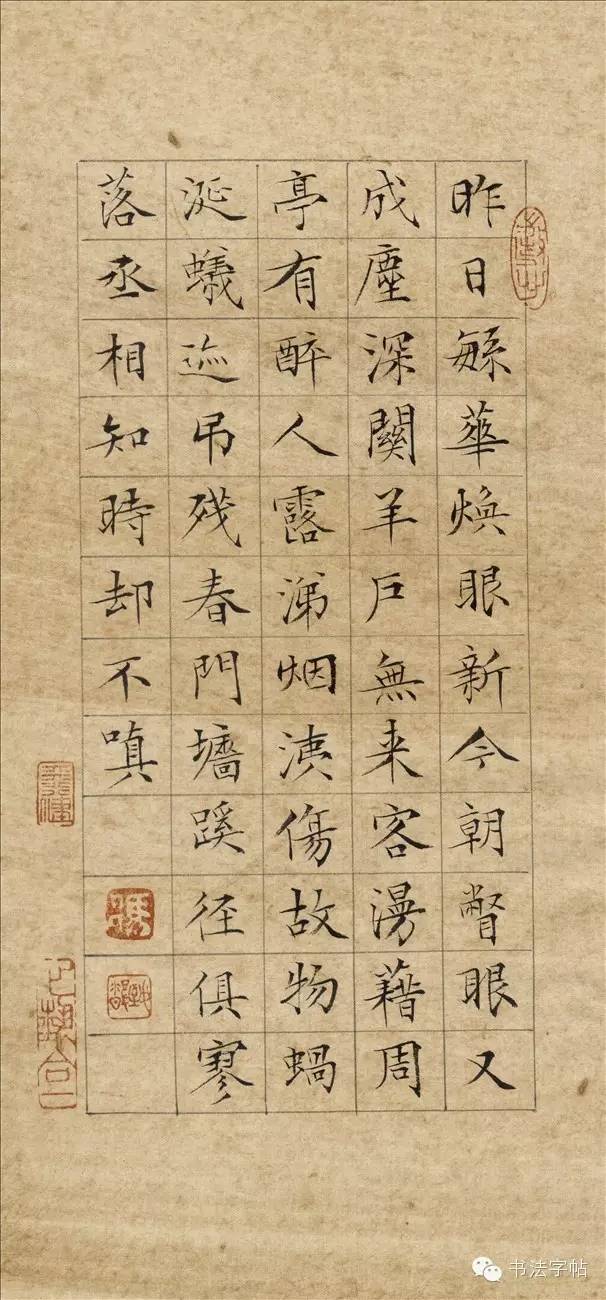 昨日緐華焕眼新今朝瞥眼又
成塵深關羊戶無来客漫藉周
亭有醉人露涕烟洟傷故物蝸
涎蟻迹吊残春門墻蹊径俱寥
落丞相知時却不嗔
书法字帖